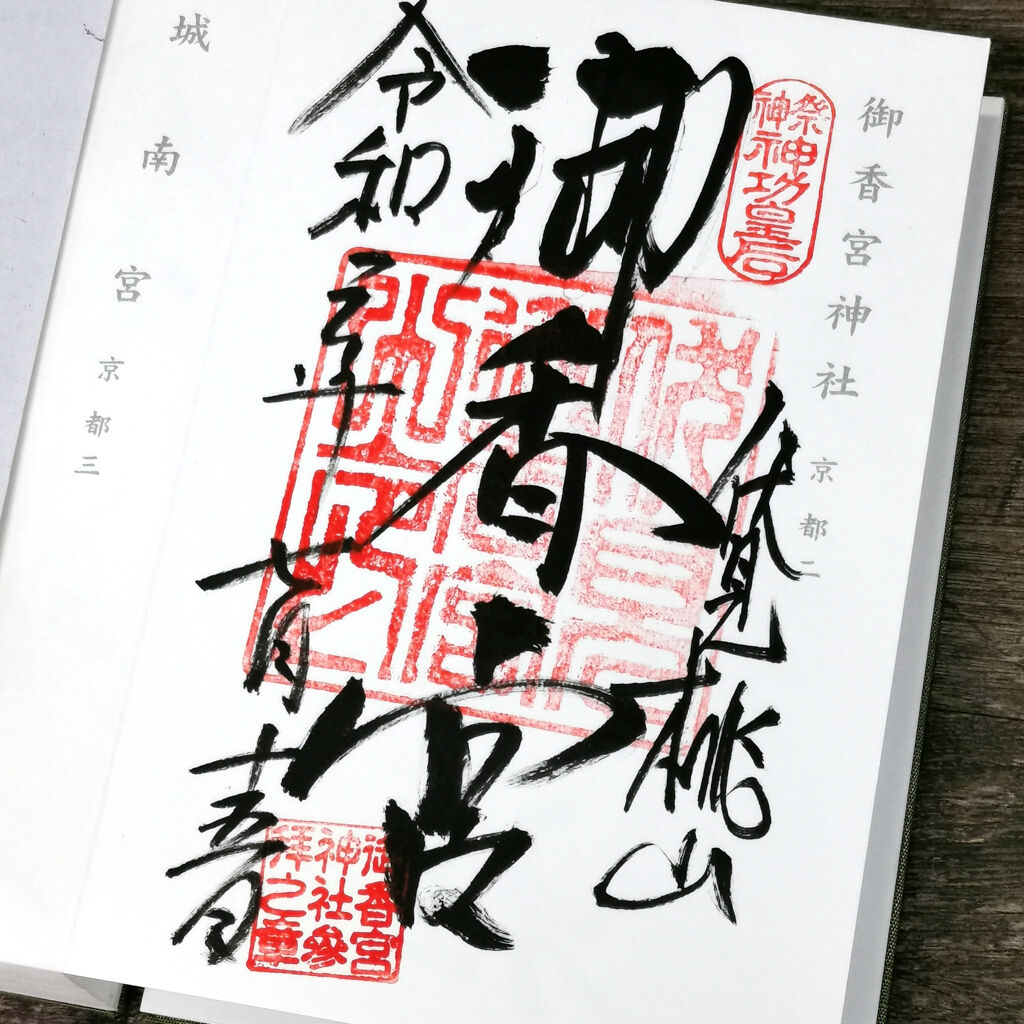 御香宮神社 京都二
祭神
神功皇后
伏見桃山
御香宮
令和三年七月十五日
御香宮
神社參
拜之章
城南宮 京都三